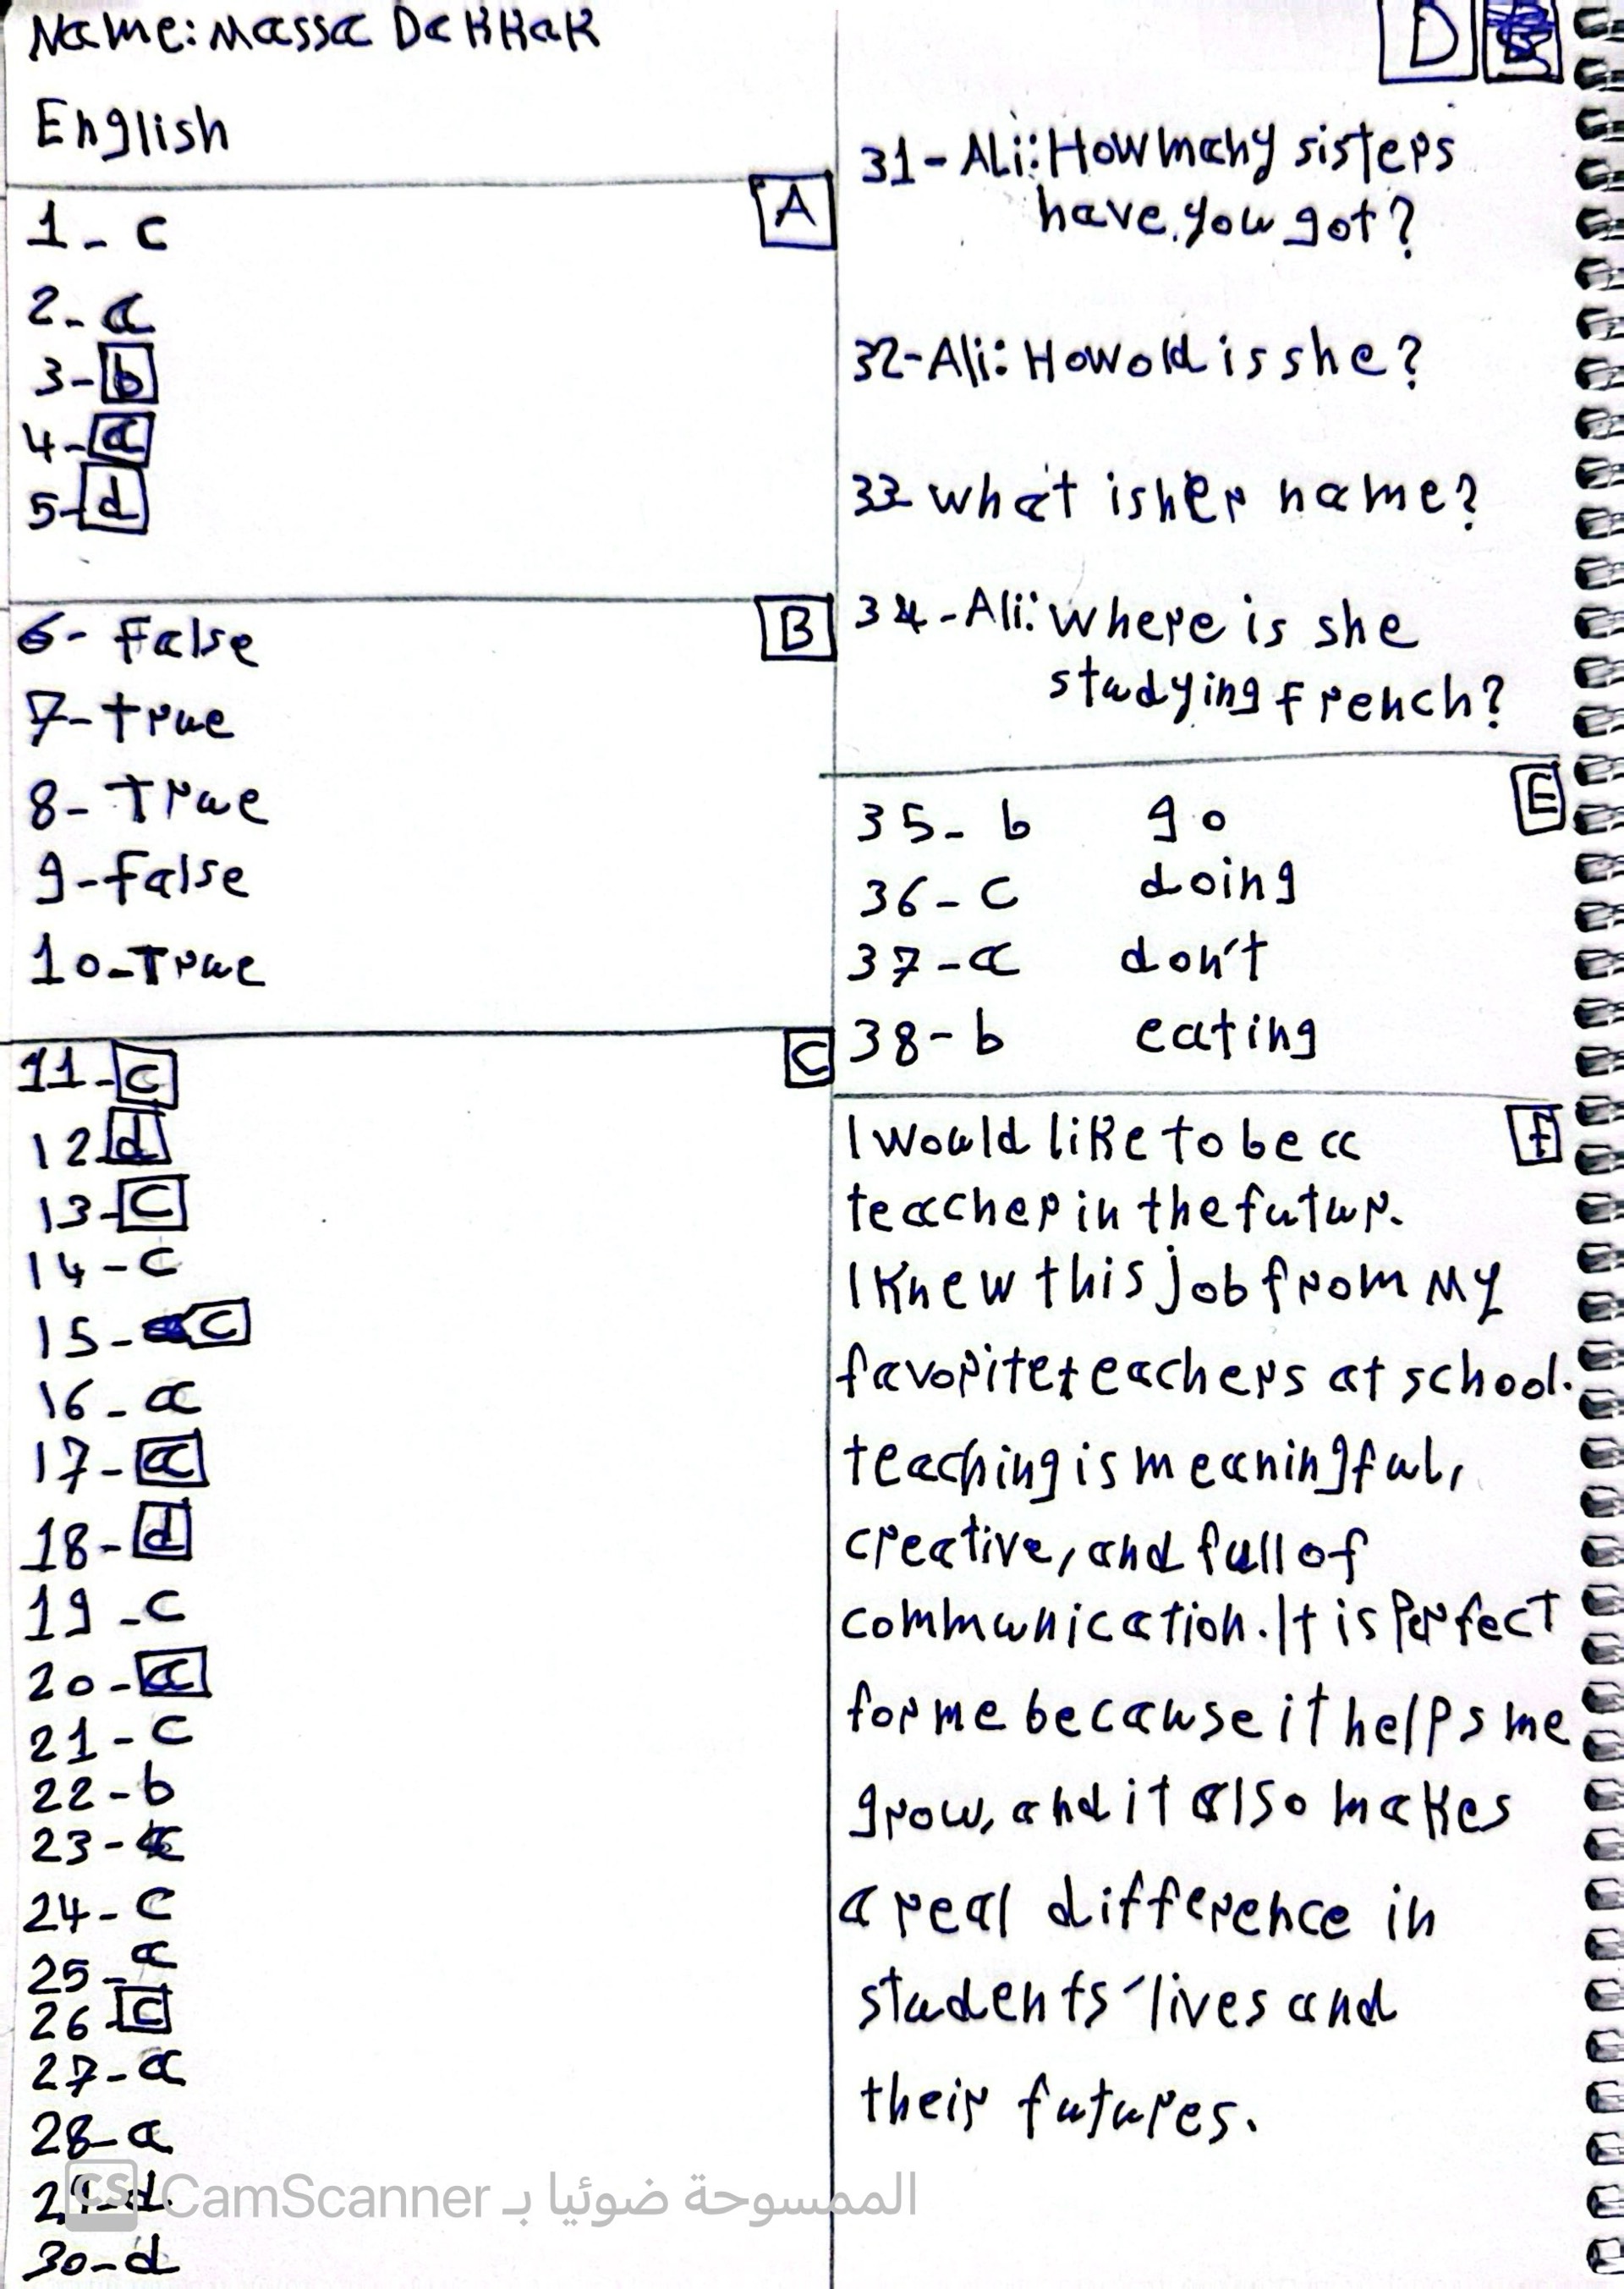 Name: Massa Dakkak
English
A
1- c
2- a
3- b
4- a
5- d
B
6- False
7- true
8- True
9- false
10- True
C
11- c
12- d
13- c
14- c
15- c
16- a
17- a
18- d
19- c
20- a
21- c
22- b
23- a
24- c
25- a
26- c
27- a
28- a
29- d
30- d
D
31- Ali: How many sisters
have you got?
32- Ali: How old is she?
33- what is her name?
34- Ali: where is she
studying french?
E
35- b go
36- c doing
37- a don't
38- b eating
f
I would like to be a
teacher in the futur.
I knew this job from my
favorite teachers at school.
teaching is meaningful,
creative, and full of
communication. It is perfect
for me because it helps me
grow, and it also makes
a real difference in
students' lives and
their futures.
CS CamScanner الممسوحة ضوئيا بـ